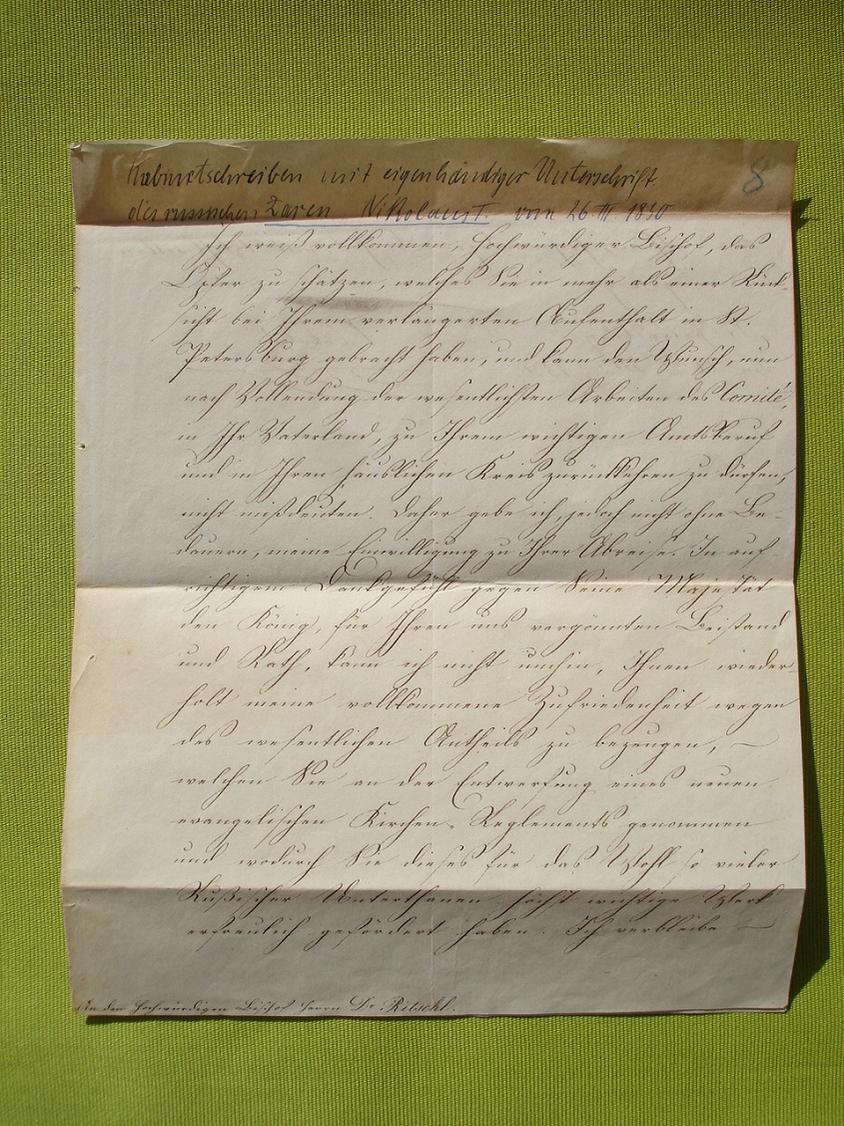 Kabinetschreiben mit eigenhändiger Unterschrift
8
des russischen Zaren Nikolaus I. vom 26 III 1830
Ich weiß vollkommen, Hochwürdiger Bischof, das
Opfer zu schätzen, welches Sie in mehr als einer Rück-
sicht bei Ihrem verlängerten Aufenthalt in St.
Petersburg gebracht haben, und kann den Wunsch, nun
nach Vollendung der wesentlichsten Arbeiten des Comité,
in Ihr Vaterland, zu Ihrem wichtigen Amtsberuf
und in Ihren häuslichen Kreis zurückkehren zu dürfen,
nicht mißdeuten. Daher gebe ich, jedoch nicht ohne Be-
dauern, meine Einwilligung zu Ihrer Abreise. In auf-
richtigem Dankgefühl gegen Seine Majestät
den König, für Ihren uns vergönnten Beistand
und Rath, kann ich nicht umhin, Ihnen wieder-
holt meine vollkommene Zufriedenheit wegen
des wesentlichen Antheils zu bezeugen, —
welchen Sie an der Entwerfung eines neuen
evangelischen Kirchen-Reglements genommen
und wodurch Sie dieses für das Wohl so vieler
Rußischer Unterthanen höchst wichtige Werk
erfreulich gefördert haben. Ich verbleibe —
An den Hochwürdigen Bischof Herrn Dr. Ritschl.